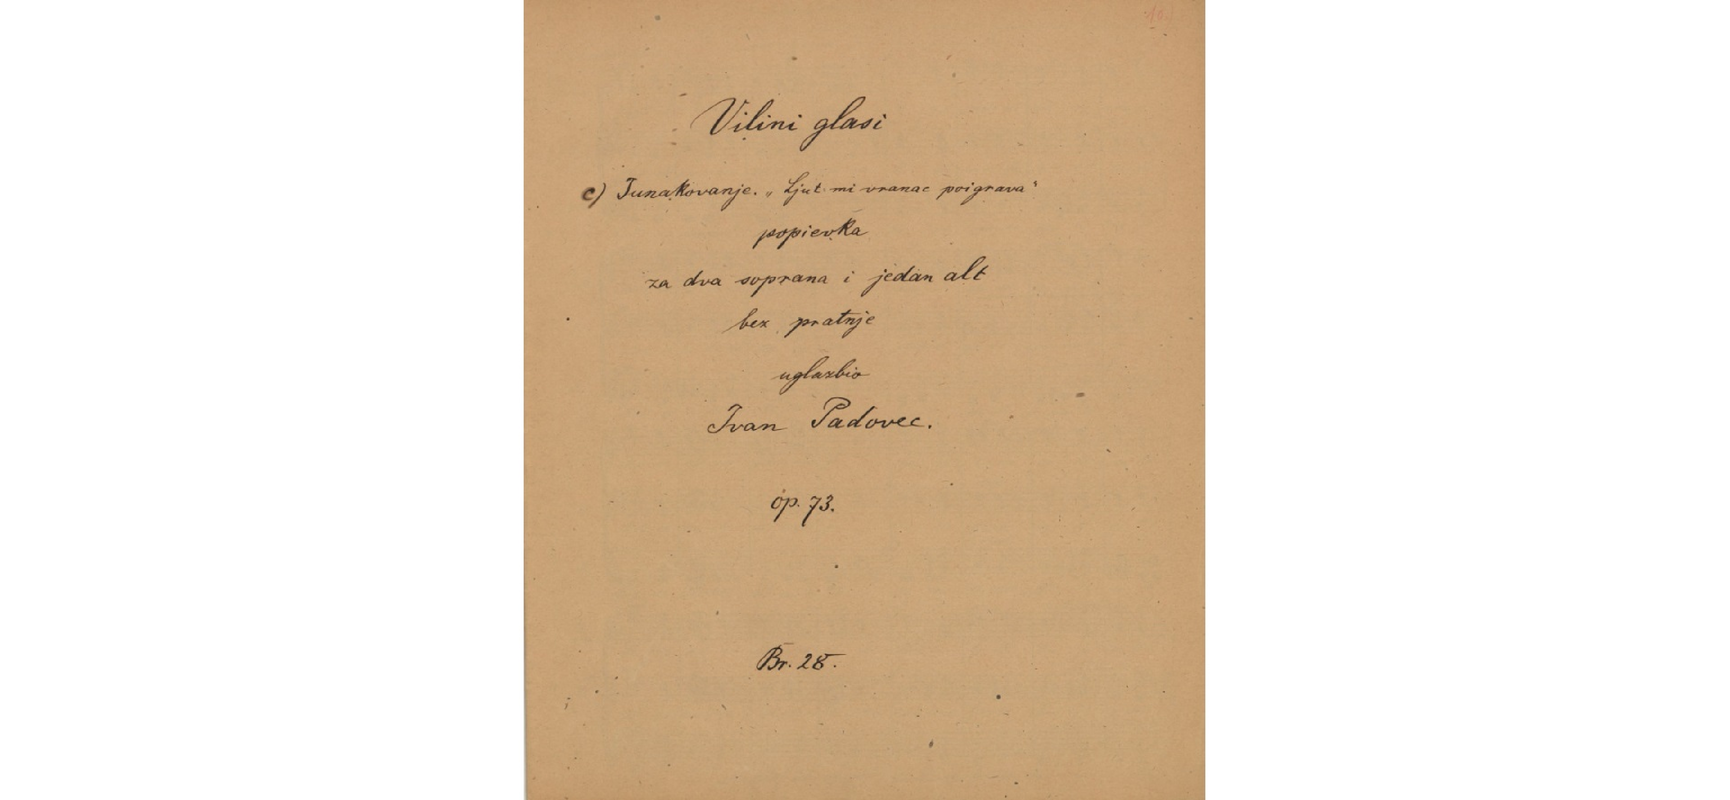 Vilini glasi
c) Junakovanje. „Ljut mi vranac poigrava"
popievka
za dva soprana i jedan alt
bez pratnje
uglazbio
Ivan Padovec.
op. 73.
Br. 28.